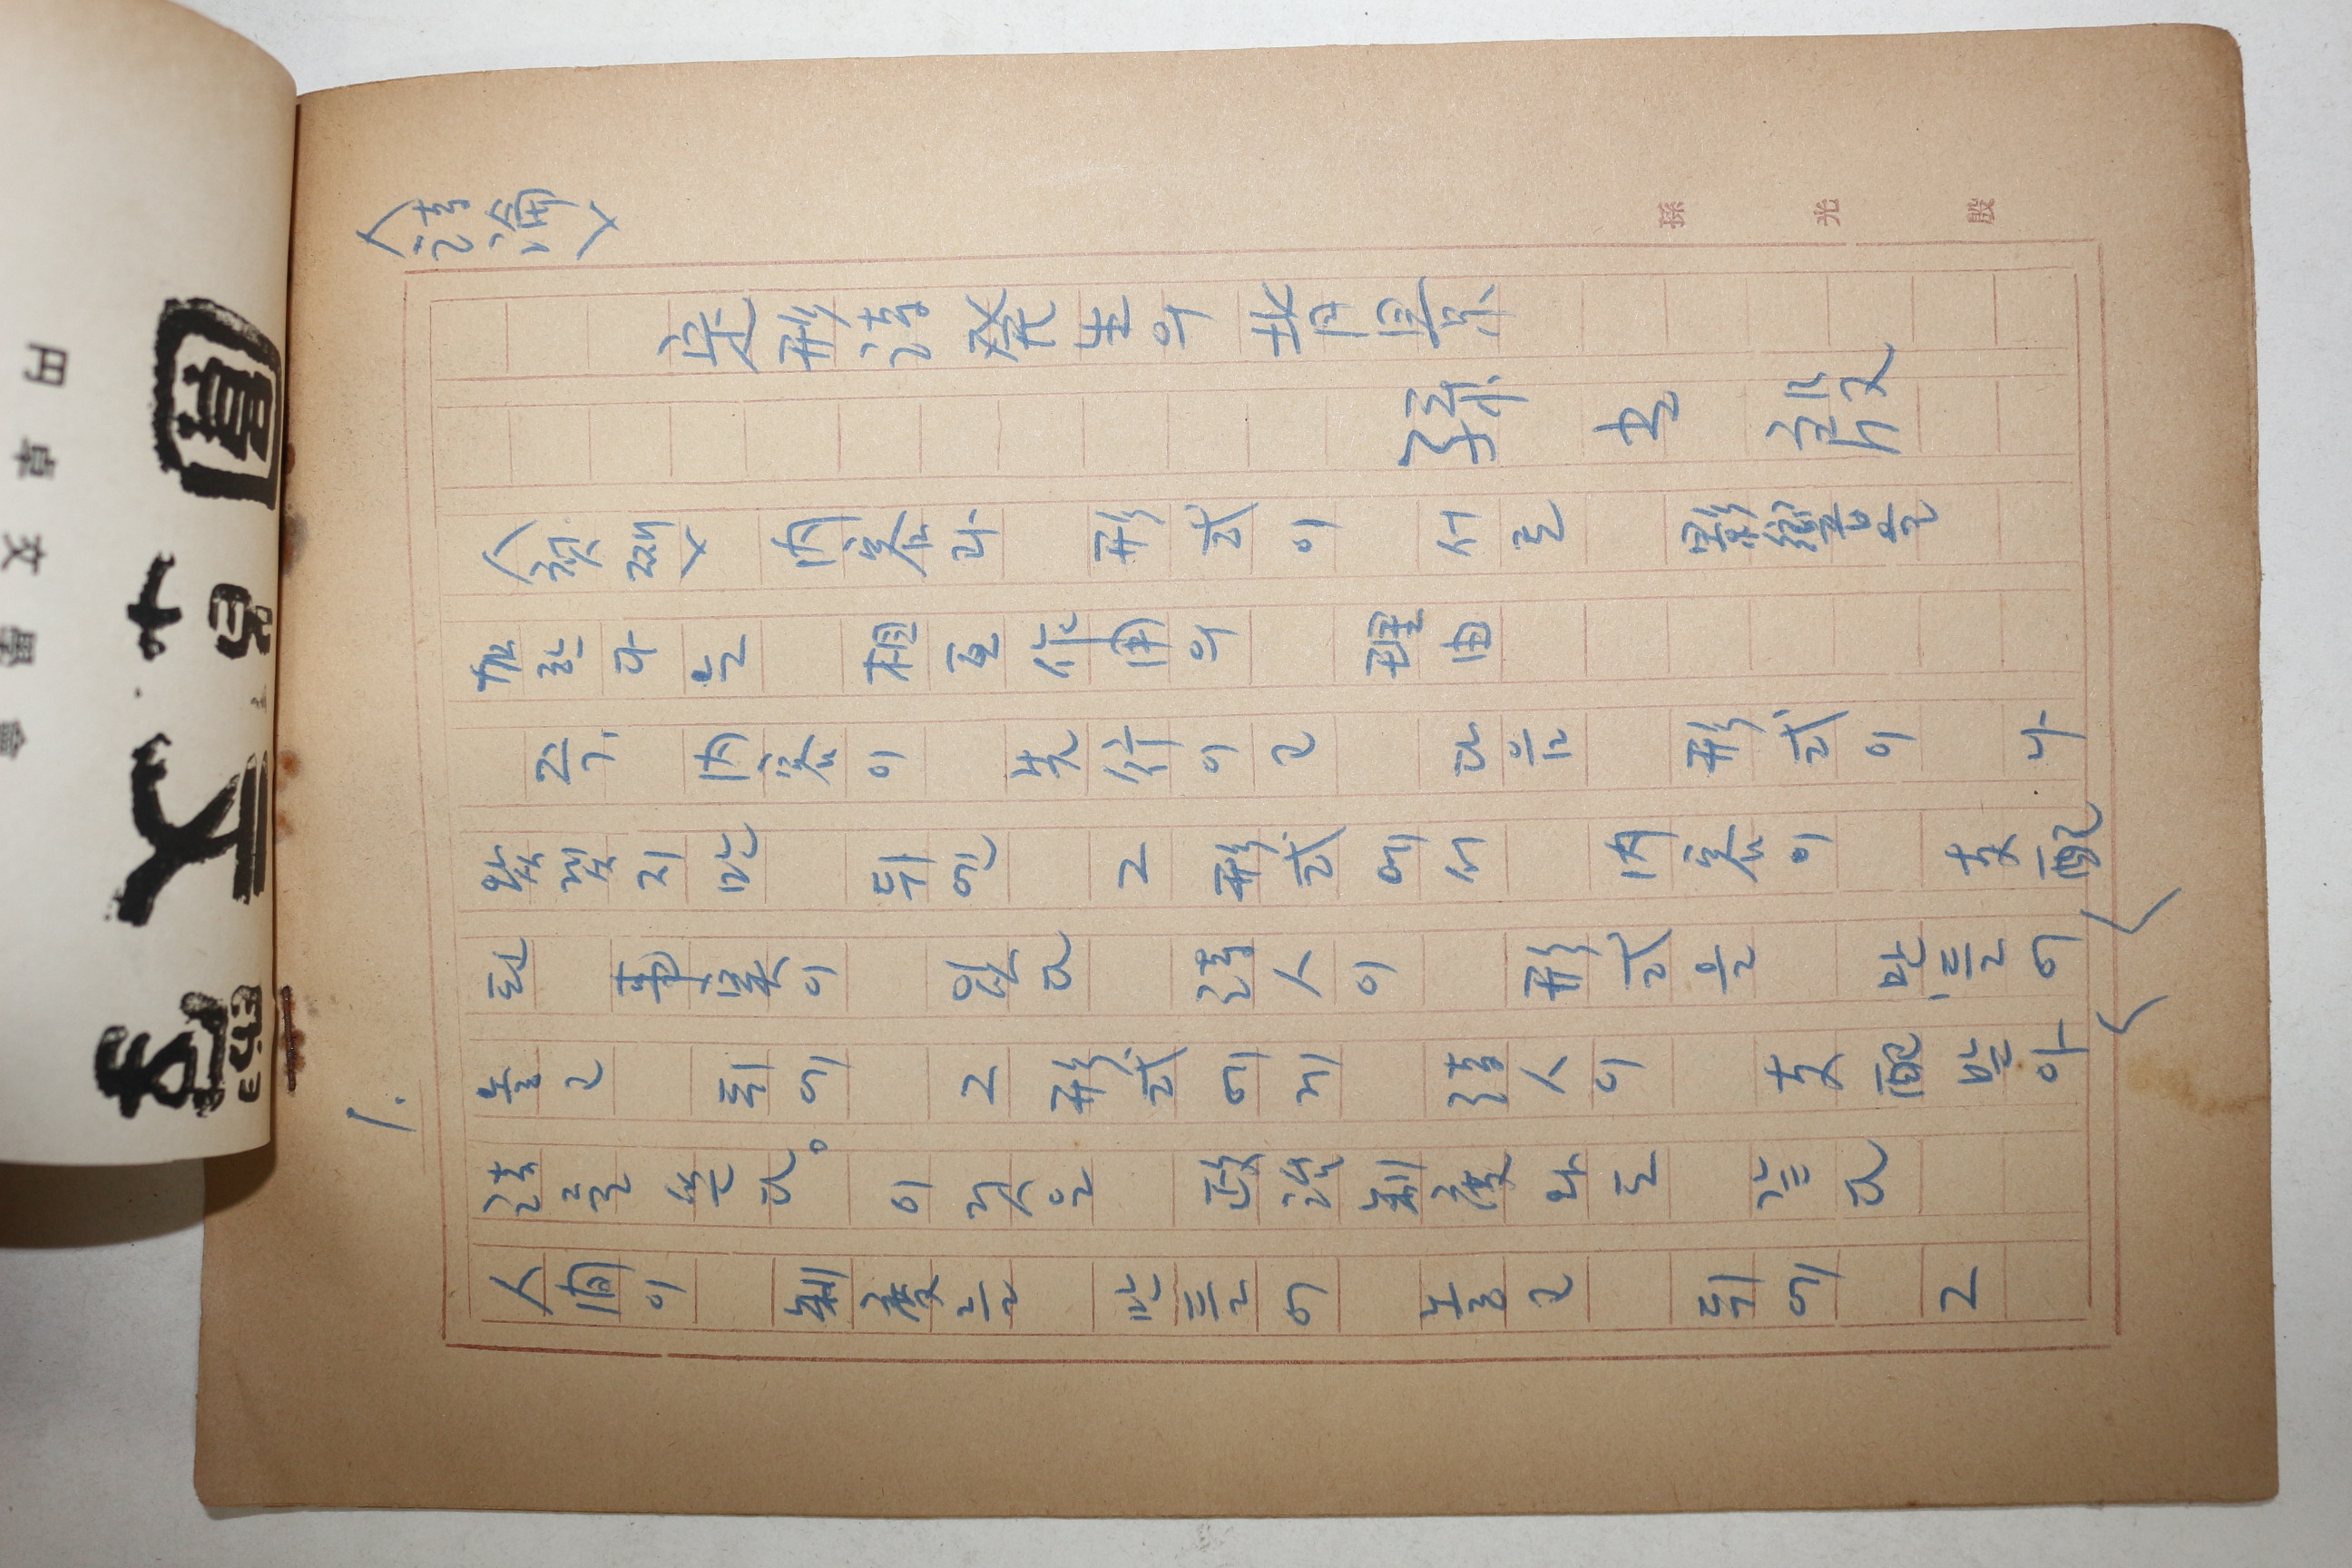 円卓文學會
圓卓文學
<詩論>
孫光殷
定形詩 発生의 背景
孫 光 殷
<첫째> 内容과 形式이 서로 影響을
加한다는 相互作用의 理由
즉, 内容이 先行이고 다음 形式이 나
왔겠지만 뒤엔 그 形式에서 内容이 支配
된 事実이 있다 詩人이 形式을 만들어
놓고 뒤에 그 形式에게 詩人이 支配받아
詩를 쓴다。 이것은 政治制度와도 같다
人間이 制度를 만들어 놓고 뒤에 그
1.